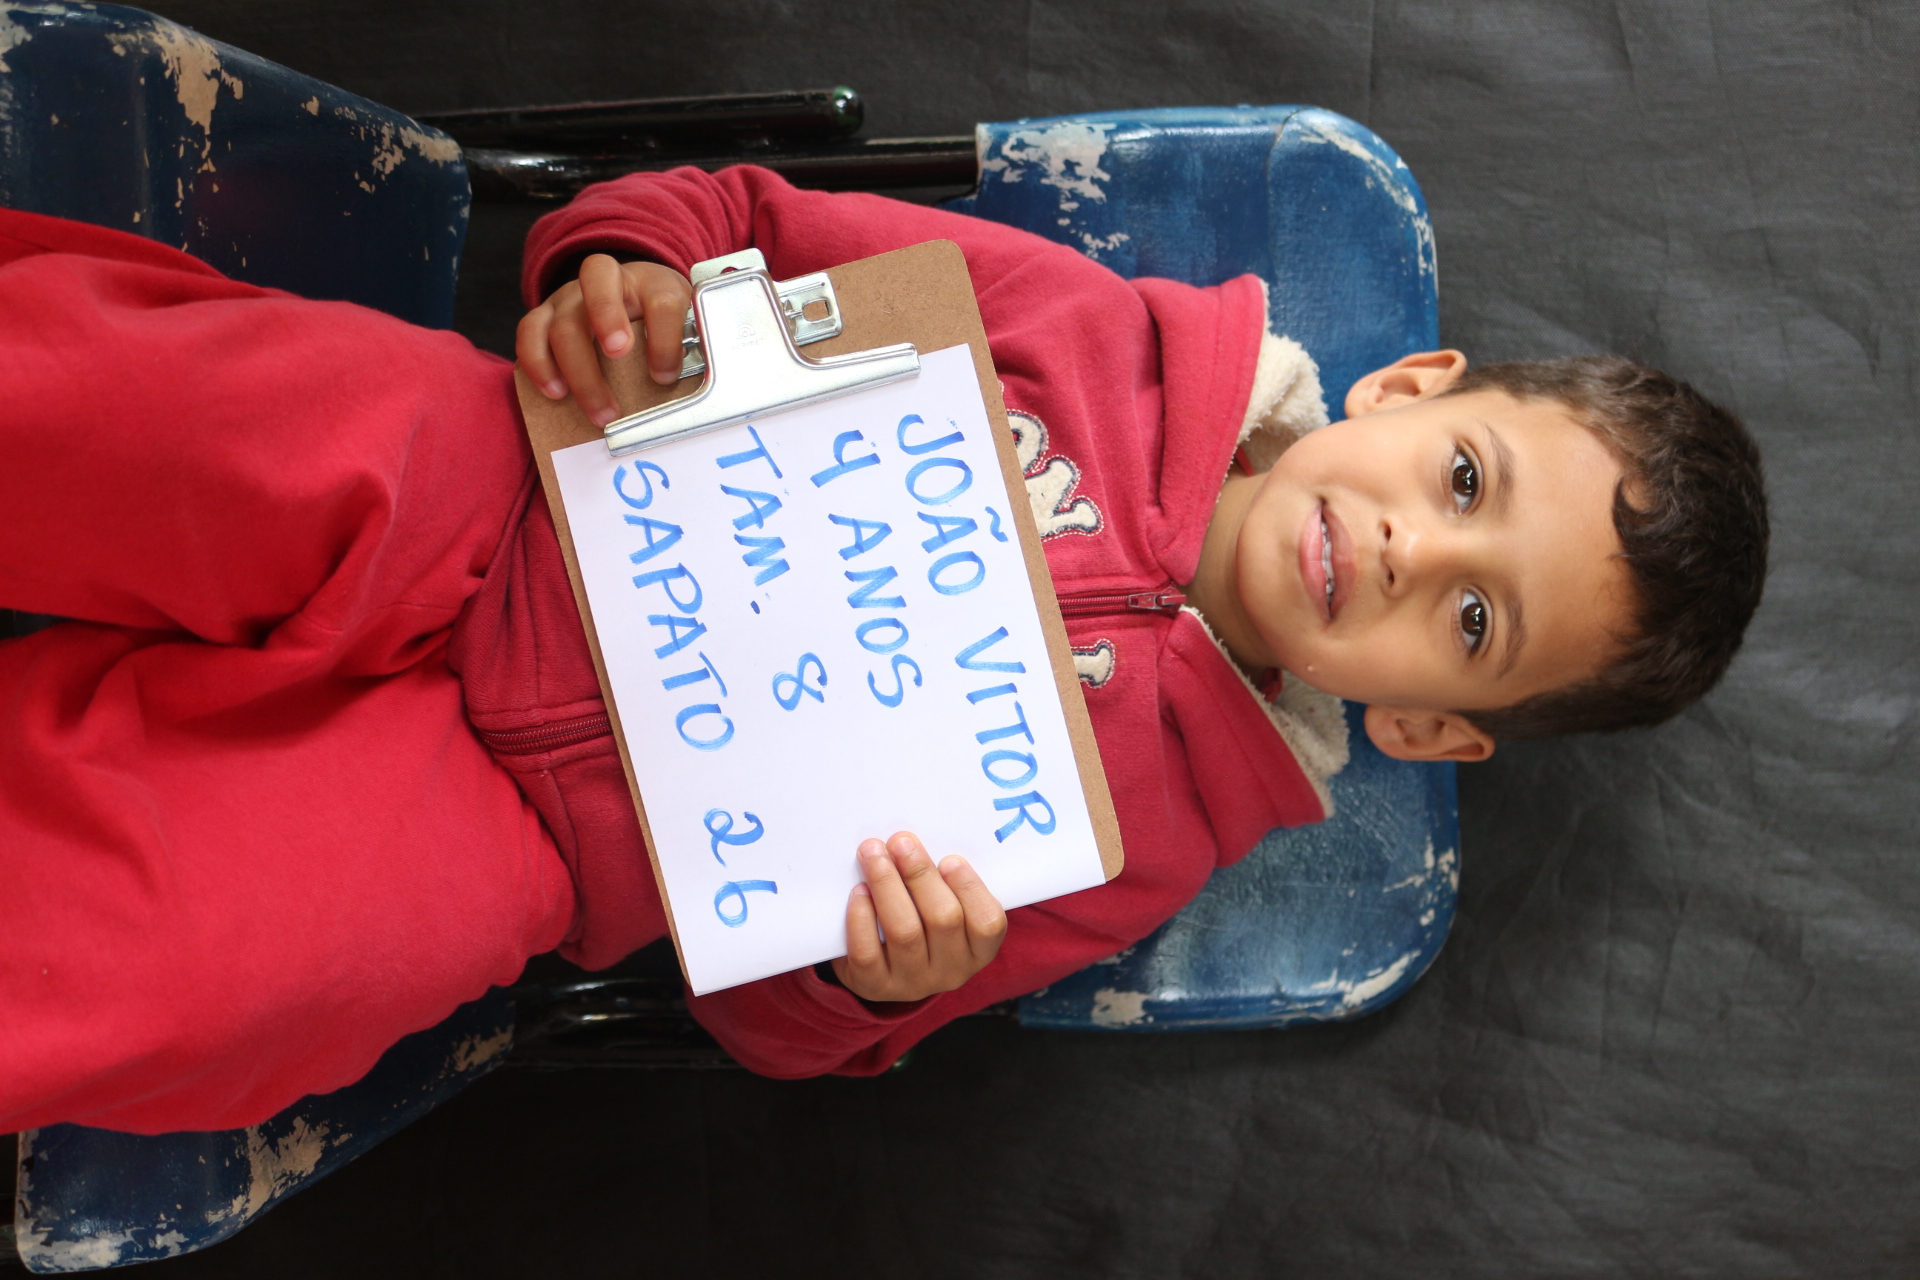 JOÃO VITOR
4 ANOS
TAM. 8
SAPATO 26